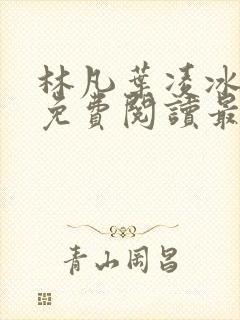 林凡葉凌冰
免費閱讀最
青山岡昌